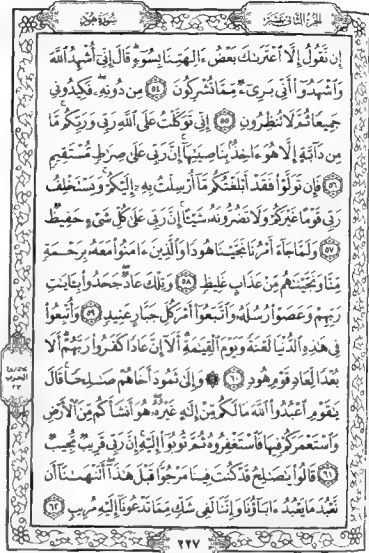 الجزء الثاني عشر
سورة هود
إِن نَّقُولُ إِلَّا ٱعْتَرَىٰكَ بَعْضُ ءَالِهَتِنَا بِسُوٓءٍ ۗ قَالَ إِنِّىٓ أُشْهِدُ ٱللَّهَ
وَٱشْهَدُوٓا۟ أَنِّى بَرِىٓءٌ مِّمَّا تُشْرِكُونَ ٥٤ مِن دُونِهِۦ ۖ فَكِيدُونِى
جَمِيعًا ثُمَّ لَا تُنظِرُونِ ٥٥ إِنِّى تَوَكَّلْتُ عَلَى ٱللَّهِ رَبِّى وَرَبِّكُم ۚ مَّا
مِن دَآبَّةٍ إِلَّا هُوَ ءَاخِذٌۢ بِنَاصِيَتِهَآ ۚ إِنَّ رَبِّى عَلَىٰ صِرَٰطٍ مُّسْتَقِيمٍ
٥٦ فَإِن تَوَلَّوْا۟ فَقَدْ أَبْلَغْتُكُم مَّآ أُرْسِلْتُ بِهِۦٓ إِلَيْكُمْ ۚ وَيَسْتَخْلِفُ
رَبِّى قَوْمًا غَيْرَكُمْ وَلَا تَضُرُّونَهُۥ شَيْـًٔا ۚ إِنَّ رَبِّى عَلَىٰ كُلِّ شَىْءٍ حَفِيظٌ
٥٧ وَلَمَّا جَآءَ أَمْرُنَا نَجَّيْنَا هُودًا وَٱلَّذِينَ ءَامَنُوا۟ مَعَهُۥ بِرَحْمَةٍ
مِّنَّا وَنَجَّيْنَٰهُم مِّنْ عَذَابٍ غَلِيظٍ ٥٨ وَتِلْكَ عَادٌ ۖ جَحَدُوا۟ بِـَٔايَٰتِ
رَبِّهِمْ وَعَصَوْا۟ رُسُلَهُۥ وَٱتَّبَعُوٓا۟ أَمْرَ كُلِّ جَبَّارٍ عَنِيدٍ ٥٩ وَأُتْبِعُوا۟
فِى هَٰذِهِ ٱلدُّنْيَا لَعْنَةً وَيَوْمَ ٱلْقِيَٰمَةِ ۗ أَلَآ إِنَّ عَادًا كَفَرُوا۟ رَبَّهُمْ ۗ أَلَا
بُعْدًا لِّعَادٍ قَوْمِ هُودٍ ٦٠ ۞ وَإِلَىٰ ثَمُودَ أَخَاهُمْ صَٰلِحًا ۚ قَالَ
يَٰقَوْمِ ٱعْبُدُوا۟ ٱللَّهَ مَا لَكُم مِّنْ إِلَٰهٍ غَيْرُهُۥ ۖ هُوَ أَنشَأَكُم مِّنَ ٱلْأَرْضِ
وَٱسْتَعْمَرَكُمْ فِيهَا فَٱسْتَغْفِرُوهُ ثُمَّ تُوبُوٓا۟ إِلَيْهِ ۚ إِنَّ رَبِّى قَرِيبٌ مُّجِيبٌ
٦١ قَالُوا۟ يَٰصَٰلِحُ قَدْ كُنتَ فِينَا مَرْجُوًّا قَبْلَ هَٰذَآ ۖ أَتَنْهَىٰنَآ أَن
نَّعْبُدَ مَا يَعْبُدُ ءَابَآؤُنَا وَإِنَّنَا لَفِى شَكٍّ مِّمَّا تَدْعُونَآ إِلَيْهِ مُرِيبٍ ٦٢
الحزب
٢٣
٢٢٧